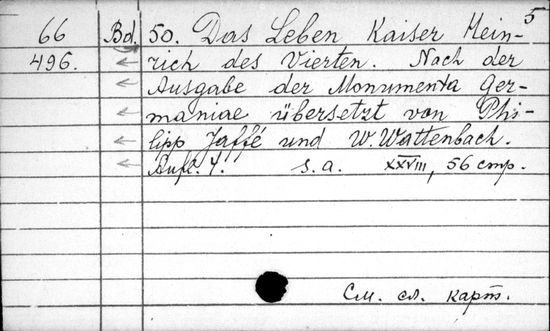 5
66 Bd. 50. Das Leben Kaiser Hein-
496. ← rich des Vierten. Nach der
← Ausgabe der Monumenta Ger-
← maniae übersetzt von Phi-
← lipp Jaffé und W. Wattenbach.
← Aufl. 4. s. a. XXVIII, 56 стр.
См. сл. карт.